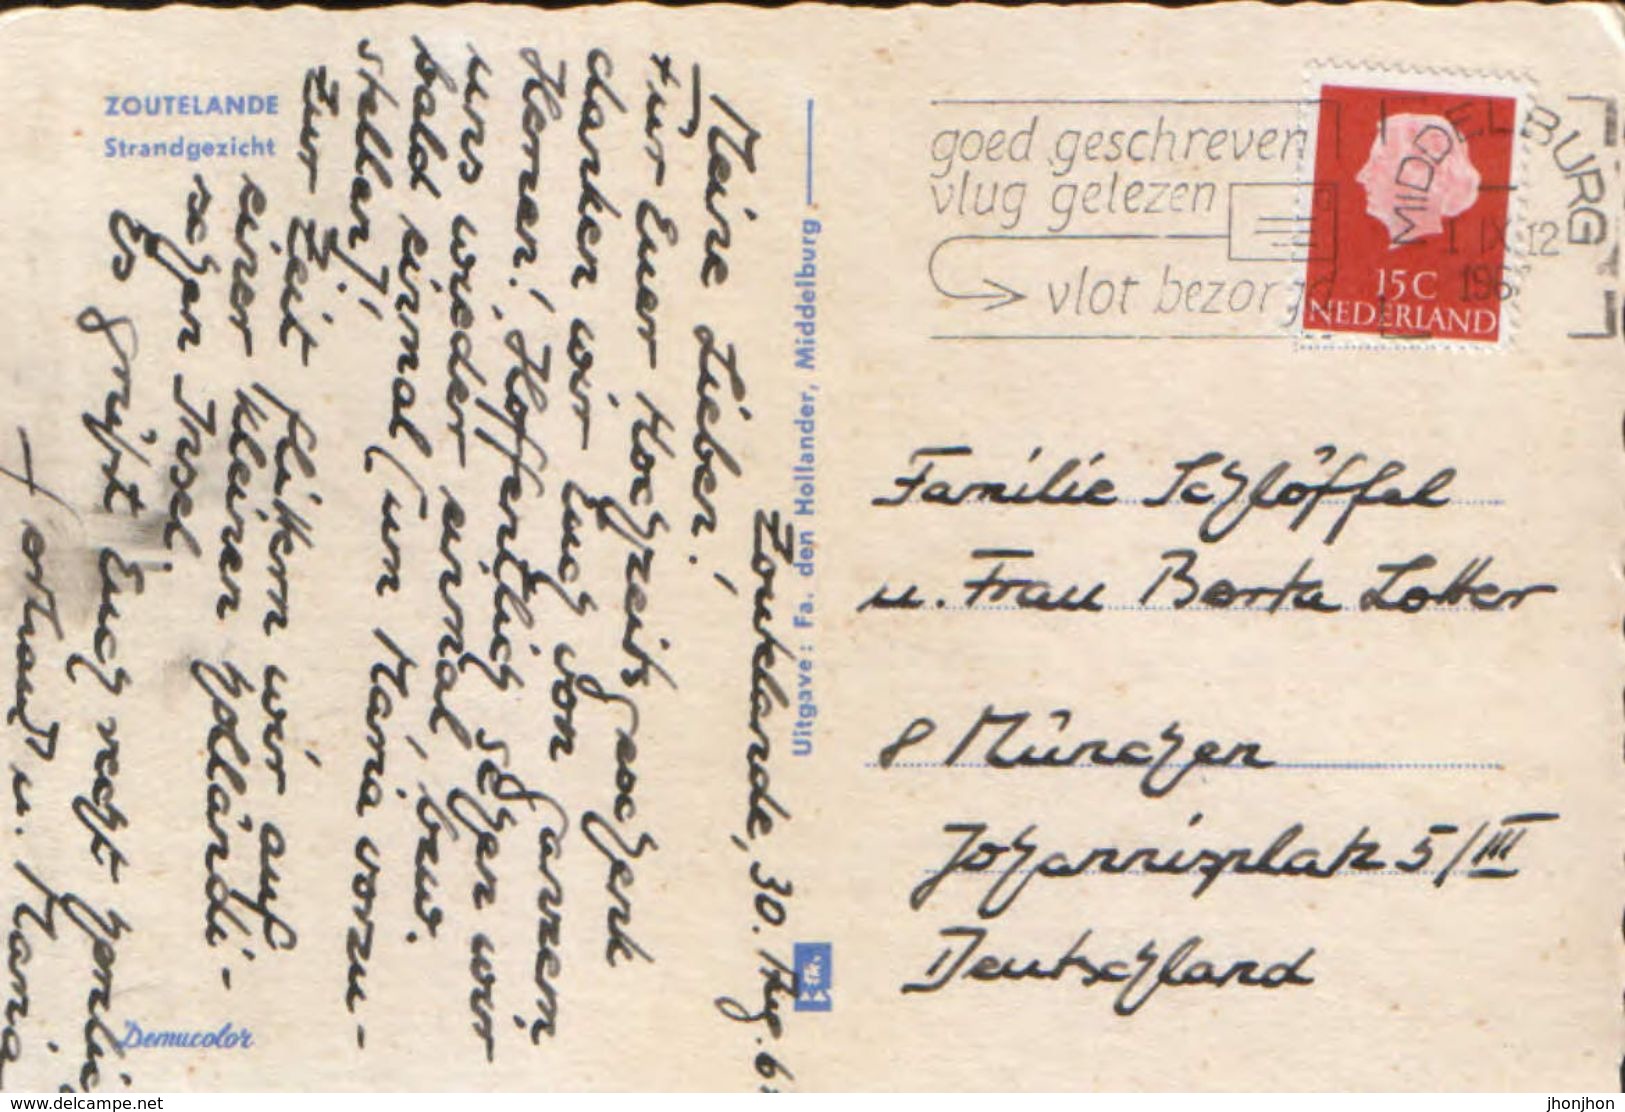 ZOUTELANDE
Strandgezicht
Zoutelande, 30. Aug.
Meine Lieben!
Für Euer Hochzeitsgeschenk
danken wir Euch von ganzem
Herzen! Hoffentlich sehen wir
uns wieder einmal, bzw.
bald einmal (um Maria vorzu-
stellen)!
Zur Zeit flittern wir auf
einer kleinen holländi-
schen Insel.
Es grüßt Euch recht herzlich
u. Maria
Uitgave: Fa. den Hollander, Middelburg
Demucolor
goed geschreven
vlug gelezen
vlot bezorgd
MIDDELBURG
1 IX 12
196
15 C
NEDERLAND
Familie Schlöffel
u. Frau Berta Lotter
8 München
Johannisplatz 5/III
Deutschland
www.delcampe.net
jhonjhon